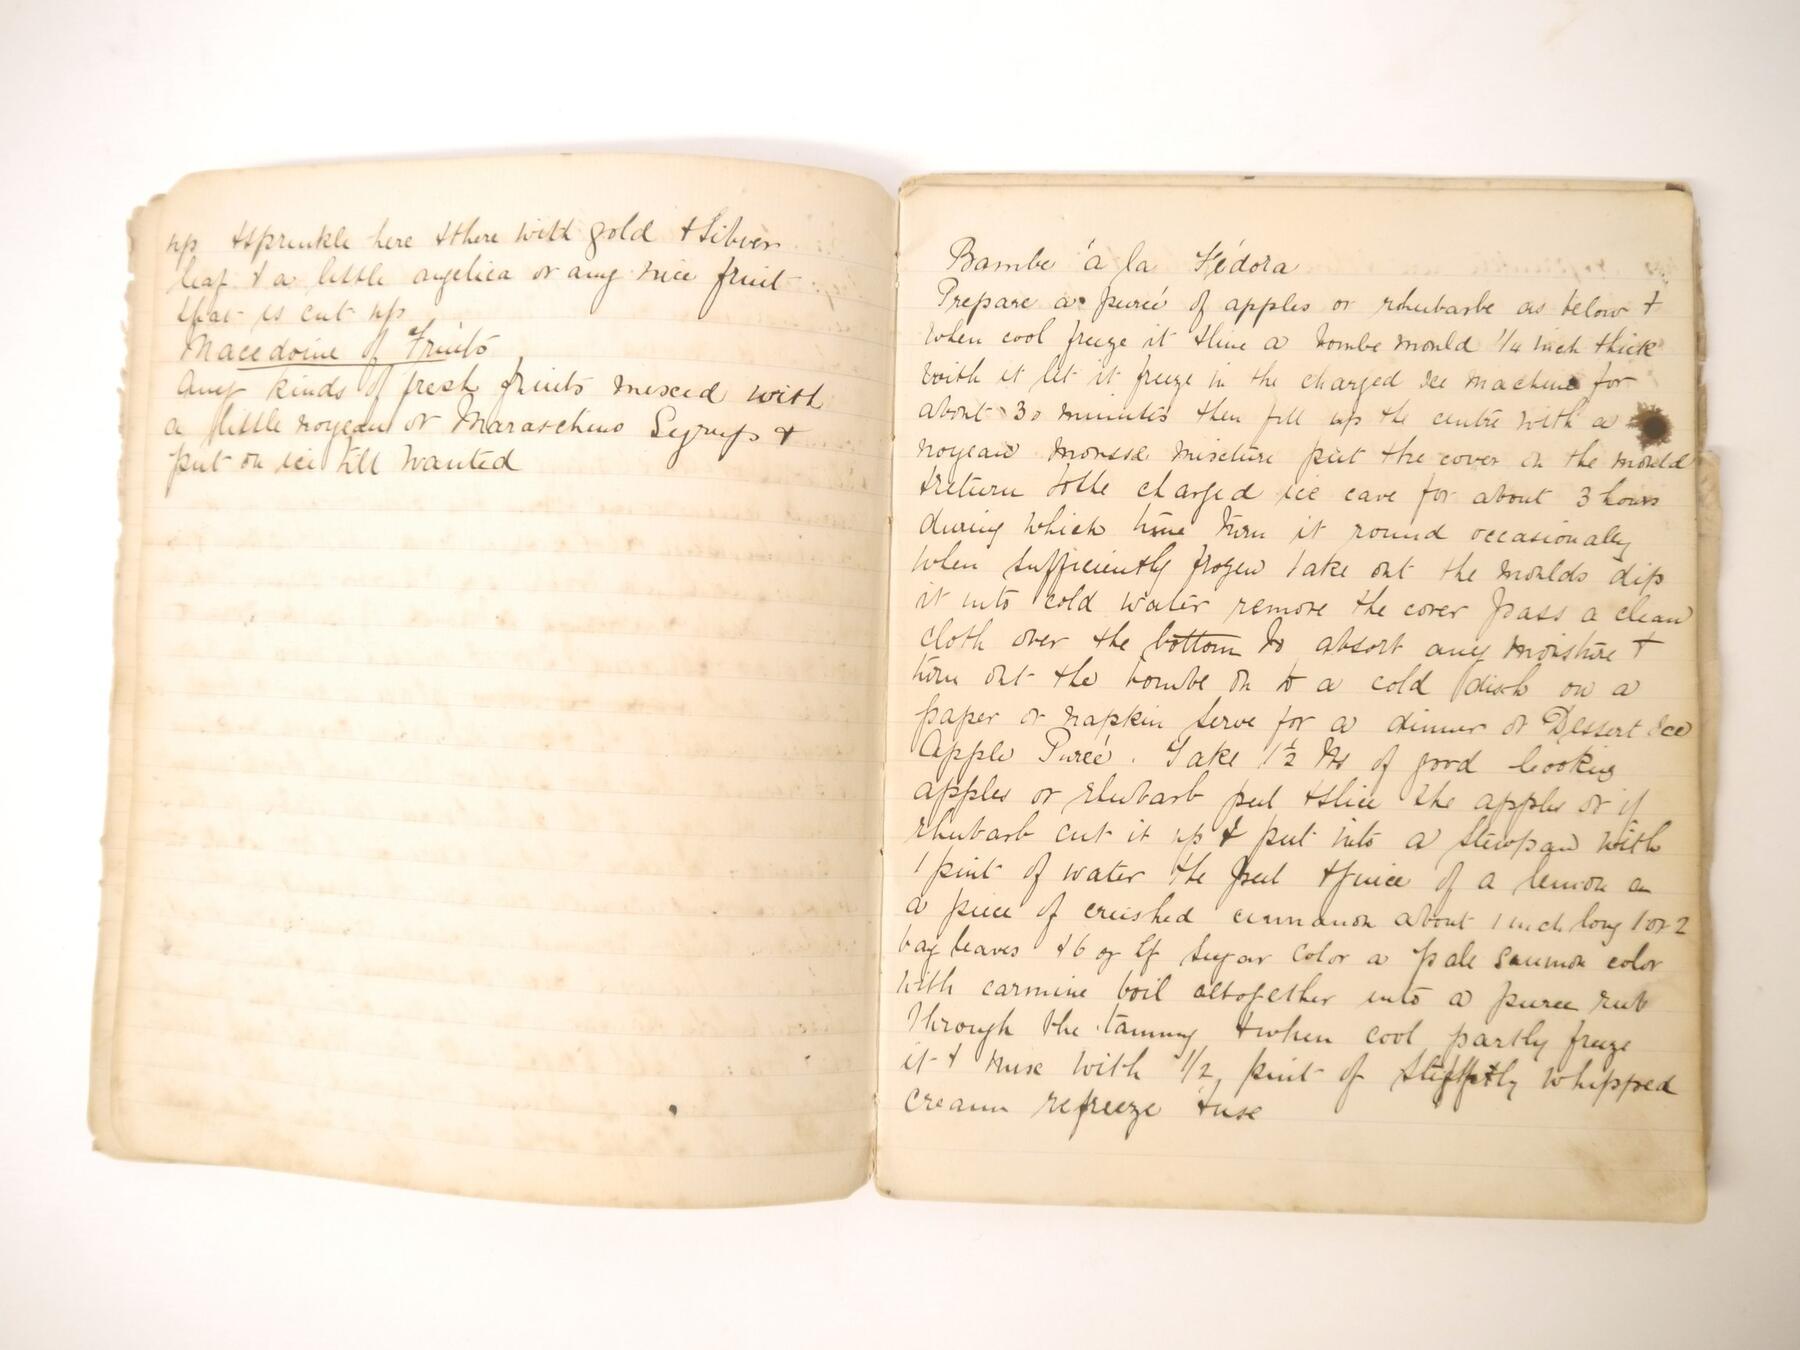 up & sprinkle here & there with gold & silver
leaf & a little angelica or any nice fruit
that is cut up
Macedoine of Fruits
Any kinds of fresh fruits mixed with
a little noyeau or Maraschino Syrups &
put on ice till wanted
Bombe á la Fédora
Prepare a pureé of apples or rhubarbe as below &
when cool freeze it & line a bombe mould 1/4 inch thick
with it let it freeze in the charged ice machine for
about 30 minutes then fill up the centre with a
noyeau mousse mixture put the cover on the mould
& return to the charged ice cave for about 3 hours
during which time turn it round occasionally
When sufficiently frozen take out the moulds dip
it into cold water remove the cover pass a clean
cloth over the bottom to absorb any moisture &
turn out the bombe on to a cold dish on a
paper or napkin serve for a dinner or Dessert Ice
Apple Pureé. Take 1 1/2 lbs of good cooking
apples or rhubarb peel & slice the apples or if
rhubarb cut it up & put into a stewpan with
1 pint of water the peel & juice of a lemon
a piece of crushed cinnamon about 1 inch long 1 or 2
bay leaves & 6 oz lf sugar color a pale salmon color
with carmine boil altogether into a puree rub
through the tammy & when cool partly freeze
it & mix with 1/2 pint of stiffly whipped
cream refreeze & use